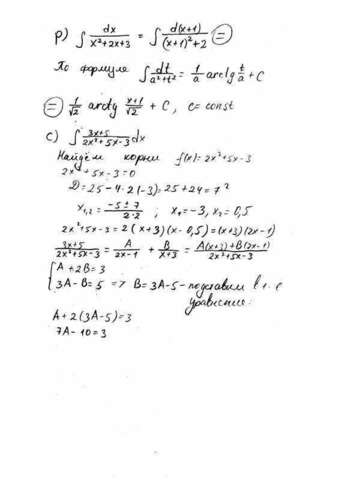 р) ∫ dx/(x²+2x+3) = ∫ d(x+1)/((x+1)²+2) (=)
По формуле ∫ dt/(a²+t²) = 1/a arctg t/a + C
(=) 1/√2 arctg (x+1)/√2 + C, c = const
с) ∫ (3x+5)/(2x²+5x-3) dx
Найдём корни f(x) = 2x²+5x-3
2x²+5x-3=0
D=25-4·2(-3)=25+24=7²
x₁,₂ = (-5±7)/(2·2) ; x₁=-3, x₂=0,5
2x²+5x-3=2(x+3)(x-0,5)=(x+3)(2x-1)
(3x+5)/(2x²+5x-3) = A/(2x-1) + B/(x+3) = (A(x+3)+B(2x-1))/(2x²+5x-3)
{ A+2B=3
3A-B=5 => B=3A-5 - подставим в 1-е
уравнение:
A+2(3A-5)=3
7A-10=3